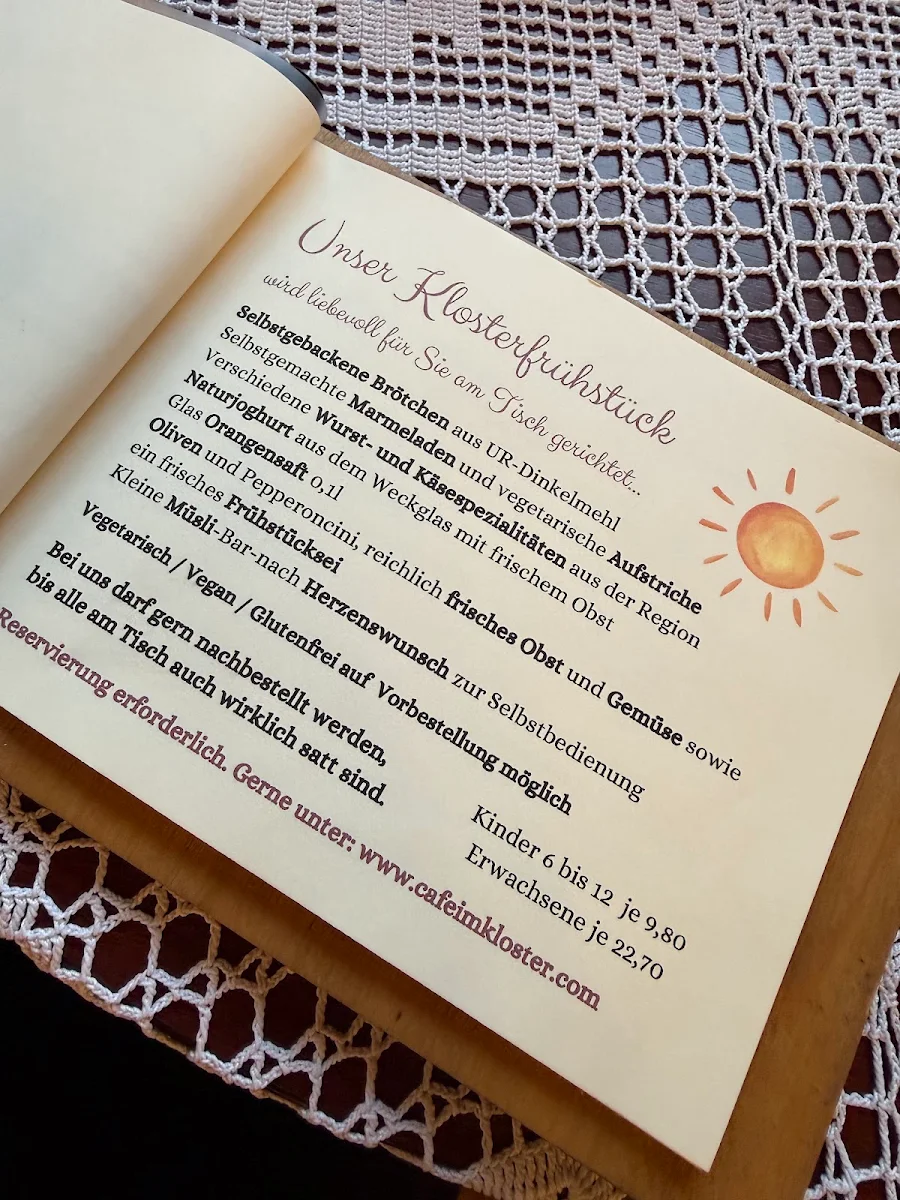 Unser Klosterfrühstück
wird liebevoll für Sie am Tisch gerichtet...
Selbstgebackene Brötchen aus UR-Dinkelmehl
Selbstgemachte Marmeladen und vegetarische Aufstriche
Verschiedene Wurst- und Käsespezialitäten aus der Region
Naturjoghurt aus dem Weckglas mit frischem Obst
Glas Orangensaft 0,1l
Oliven und Pepperoncini, reichlich frisches Obst und Gemüse sowie
ein frisches Frühstücksei
Kleine Müsli-Bar-nach Herzenswunsch zur Selbstbedienung
Vegetarisch / Vegan / Glutenfrei auf Vorbestellung möglich
Bei uns darf gern nachbestellt werden,
bis alle am Tisch auch wirklich satt sind.
Kinder 6 bis 12 je 9,80
Erwachsene je 22,70
Reservierung erforderlich. Gerne unter: www.cafeimkloster.com